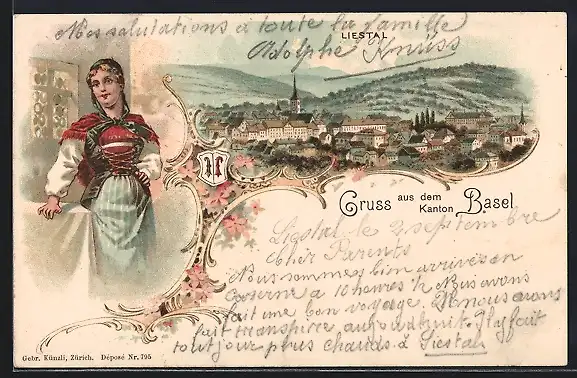 Mes salutations à toute la famille
Adolphe Knüss
LIESTAL
Gruss aus dem Kanton Basel
Liestal le 2 septembre
Cher Parents
Nous sommes bien arrivés en
caserne a 10 heures ½ Nous avons
fait une bon voyage. Nous avons
fait transpirer aujourd'huit. Il faffait
toutjour plus chauds à Liestal
Gebr. Künzli, Zürich. Déposé Nr. 795